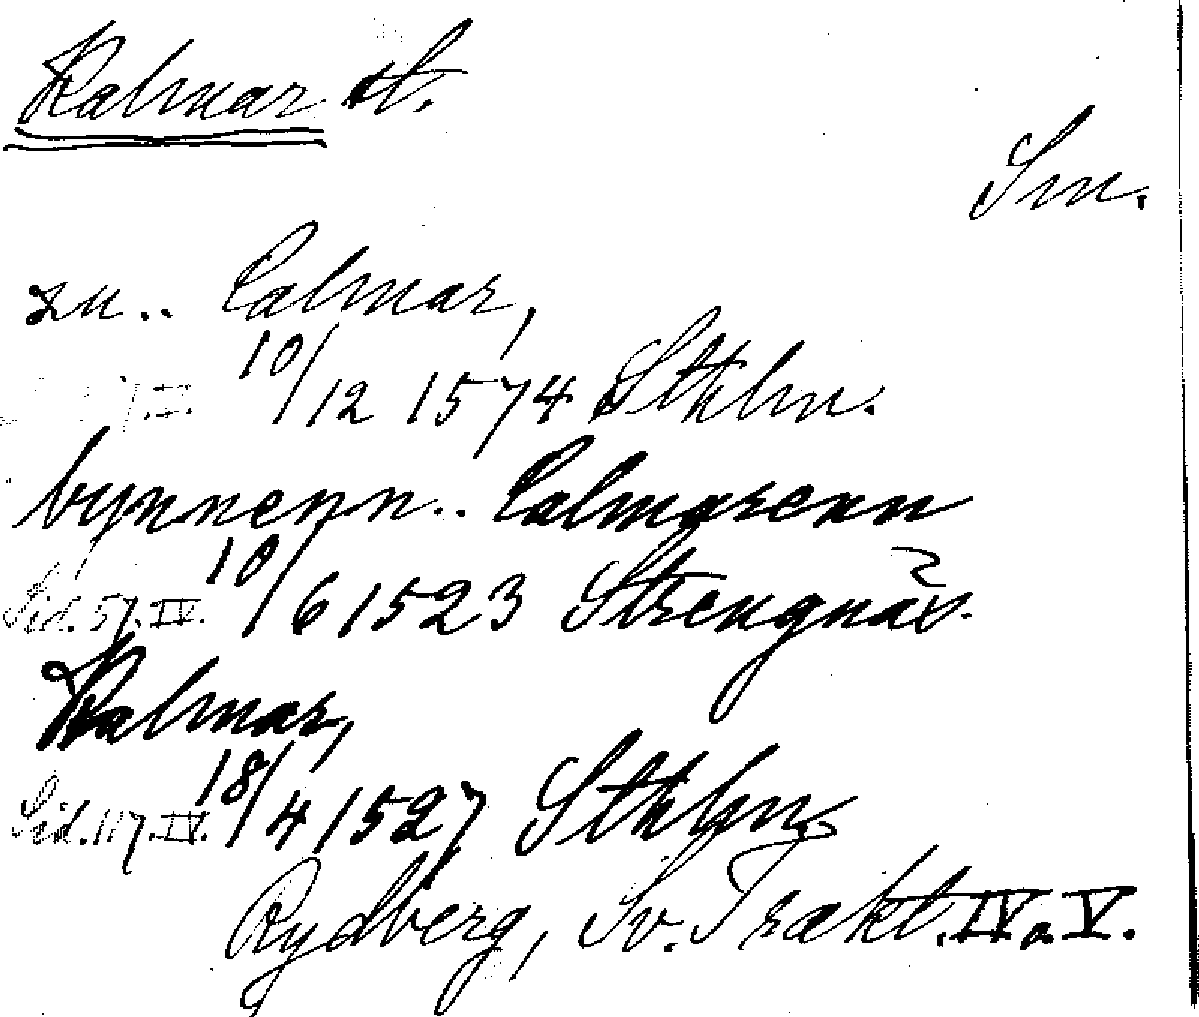 Kalmar st.
Sm.
zu.. Calmar,
10/12 1574 Sthlm.
bynnenn.. Calmarenn
Sid. 57. IV. 10/6 1523 Strengnäs.
Kalmar,
Sid. 117. IV. 18/4 1527 Sthlm.
Rydberg, Sv. Trakt. IV o. V.